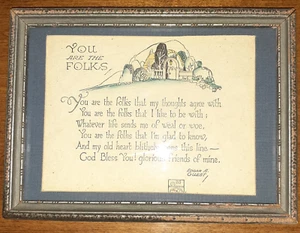 YOU
ARE THE
FOLKS.
You are the folks that my thoughts agree with
You are the folks that I like to be with;
Whatever life sends me of weal or woe.
You are the folks that I'm glad to know,
And my old heart this line—
God Bless You! glorious friends of mine.
EDGAR A.
GUEST